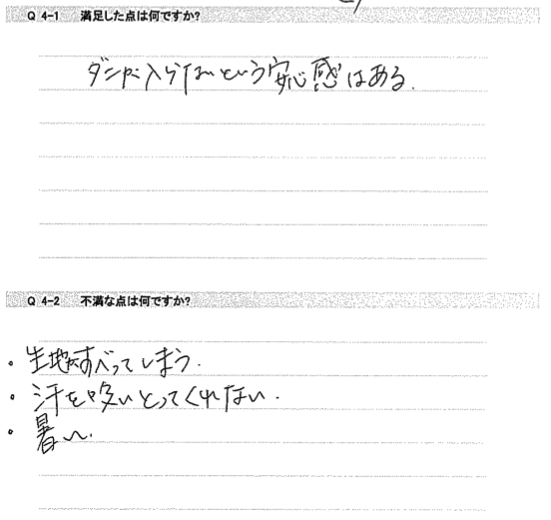 Q 4-1 満足した点は何ですか?
ダニが入らないという安心感はある.
Q 4-2 不満な点は何ですか?
・生地がすべってしまう.
・汗を吸いとってくれない.
・暑い.